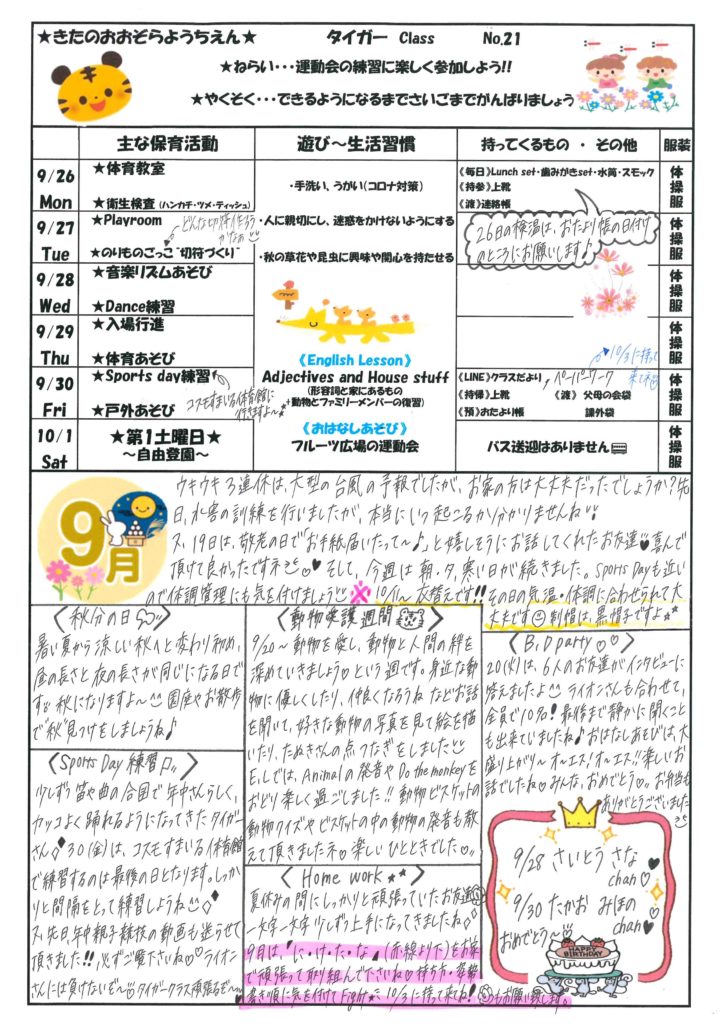 ★きたのおおぞらようちえん★ タイガー Class No.21
★ねらい・・・運動会の練習に楽しく参加しよう!!
★やくそく・・・できるようになるまでさいごまでがんばりましょう
主な保育活動 遊び～生活習慣 持ってくるもの ・ その他 服装
9/26 Mon
★体育教室
★衛生検査（ハンカチ・ツメ・ティッシュ）
・手洗い、うがい（コロナ対策）
《毎日》Lunch set・歯みがきset・水筒・スモック
《持参》上靴
《渡》連絡帳
体操服
9/27 Tue
★Playroom
どんな切符作ろうかなぁ
★のりものごっこ“切符づくり”
・人に親切にし、迷惑をかけないようにする
26日の検温は、おたより帳の日付
のところにお願いします♪
体操服
9/28 Wed
★音楽リズムあそび
★Dance練習
・秋の草花や昆虫に興味や関心を持たせる
体操服
9/29 Thu
★入場行進
★体育あそび
《English Lesson》
10/3に持って来てネ
体操服
9/30 Fri
★Sports day練習
コスモすまいる体育館に行きますよ～
★戸外あそび
Adjectives and House stuff
（形容詞と家にあるもの
+動物とファミリーメンバーの復習）
《LINE》クラスだより ペーパーワーク
《持帰》上靴 《渡》 父母の会袋
《預》おたより帳 課外袋
体操服
10/1 Sat
★第1土曜日★
～自由登園～
《おはなしあそび》
フルーツ広場の運動会
バス送迎はありません
体操服
9月
ウキウキ3連休は、大型の台風の予報でしたが、お家の方は大丈夫だったでしょうか?先
日、水害の訓練を行いましたが、本当にいつ起こるか分かりませんね
又、19日は、敬老の日で“お手紙届いたって～♪”と嬉しそうにお話してくれたお友達♥喜んで
頂けて良かったですネ そして、今週は朝・夕、寒い日が続きました。Sports Dayも近い
ので体調管理にも気を付けましょう ※10/1～衣替えです!!その日の気温・体調に合わせられて大
丈夫です 制帽は、黒帽子ですよ
〈秋分の日〉
暑い夏から涼しい秋へと変わり初め、
昼の長さと夜の長さが同じになる日で
す 秋になりますよ～ 園庭やお散歩
で“秋”見つけをしましょうね♪
〈Sports Day 練習〉
少しずつ笛や曲の合図で年中さんらしく、
カッコよく踊れるようになってきたタイガー
さん 30(金)は、コスモすまいる体育館
で練習するのは最後の日となります。しっか
りと間隔をとって練習しようね
又、先日、年中親子競技の動画も送らせて
頂きました!!必ずご覧下さいね♡ライオン
さんには負けないぞ～ タイガークラス頑張るぞ～
〈動物愛護週間〉
9/20～動物を愛し、動物と人間の絆を
深めていきましょう♡という週です。身近な動
物に優しくしたり、仲良くなろうね などお話
を聞いて、好きな動物の写真を見て絵を描
いたり、たぬきさんの点つなぎをしました
E.Lでは、Animalの発音やDo the monkeyを
おどり楽しく過ごしました!! 動物ビスケットの
動物クイズやビスケットの中の動物の発音も教
えて頂きましたネ♡楽しいひとときでした♡
〈Home work★★〉
夏休みの間にしっかりと頑張っていたお友達
一文字一文字少しずつ上手になってきましたね
今日は、“に・け・た・な”(赤線より下)もお家
で頑張って取り組んで下さいね♡持ち方・姿勢・
書き順に気を付けてFight★ 10/3に持って来てね! お願い致します。
〈B.D party♡♡〉
20(火)は、6人のお友達がインタビューに
答えましたよ ライオンさんも合わせて、
全員で10名! 最後まで静かに聞くこと
も出来ていましたね♪おはなしあそびは、大
盛り上がり～オーエス!オーエス!!楽しいお
話でしたね♡みんな、おめでとう♡。お弁当も
ありがとうございました
9/28 さいとう さな
chan♥
9/30 たかお みほの
chan♥
おめでとう～
HAPPY BIRTHDAY